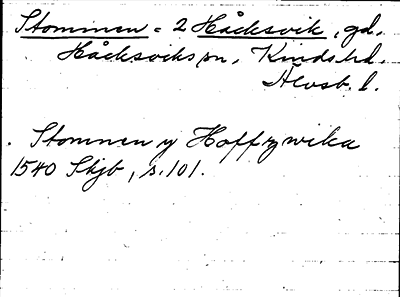 Stommen = 2 Håcksvik, gd.
Håcksviks sn, Kinds hd.
Älvsb. l.
. Stomnen y Hoffzwika
1540 Skjb, s. 101.